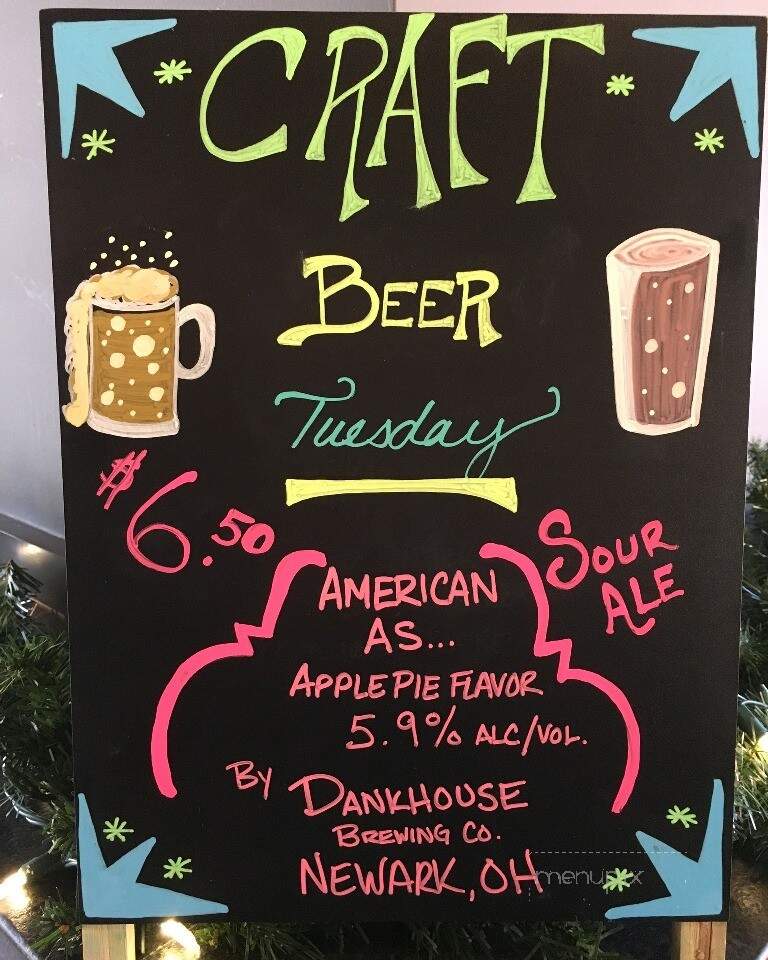 CRAFT
BEER
Tuesday
$6.50
SOUR
ALE
AMERICAN
AS...
APPLE PIE FLAVOR
5.9% ALC/VOL.
BY DANKHOUSE
BREWING CO.
NEWARK, OH